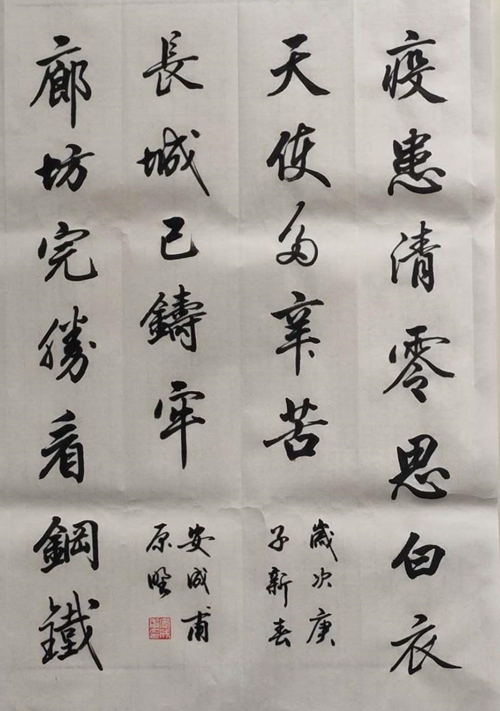 疫患清零思白衣
天使多辛苦
歲次庚
子新春
廊坊完勝看鋼鐵
長城已鑄牢
安成甫
原